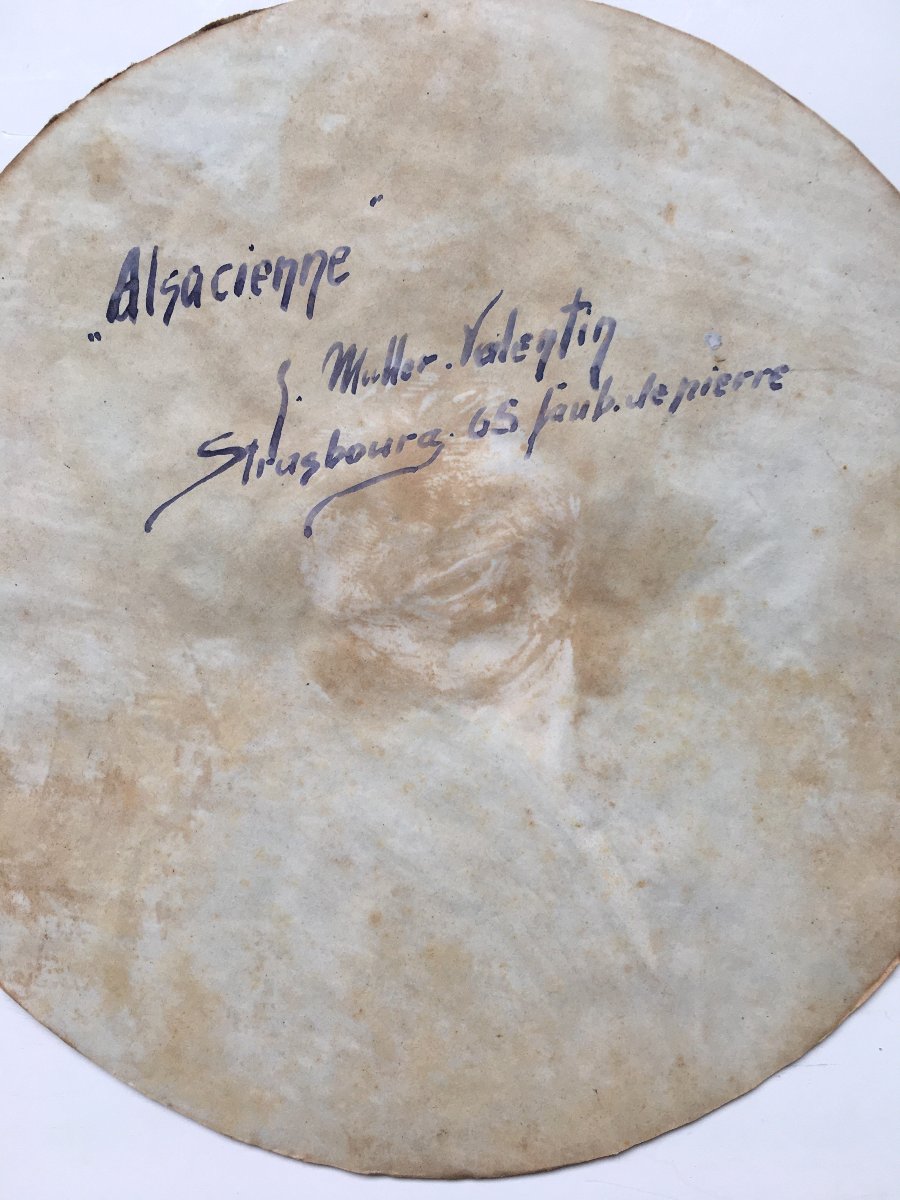 „Alsacienne"
J. Muller-Valentin
Strasbourg. 65 faub. de pierre